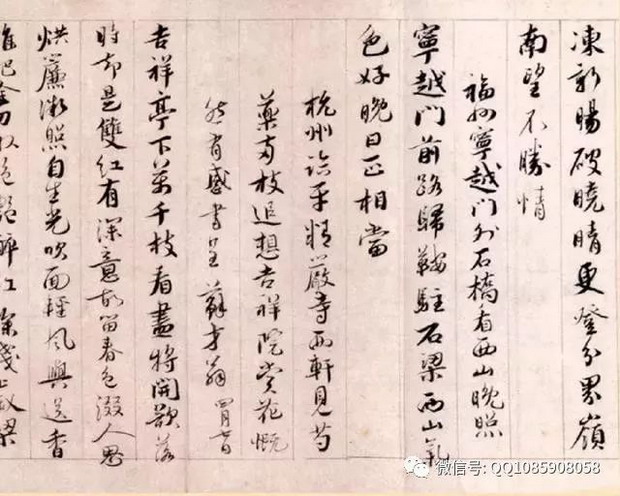 凍新暘破曉晴更登分界嶺
南望不勝情
福州寧越門外石橋看西山晚照
寧越門前路歸鞍駐石梁西山氣
色好晚日正相當
杭州臨平精嚴寺西軒見芍
藥兩枝追想吉祥院賞花慨
然有感書呈蘇才翁 四月七日
吉祥亭下萬千枝看盡將開欲落
時却是雙紅有深意故留春色綴人思
烘簾微照自生光吹面輕風與送香
誰把金刀收絶艷醉紅深淺上釵梁
微信号: QQ1085908058